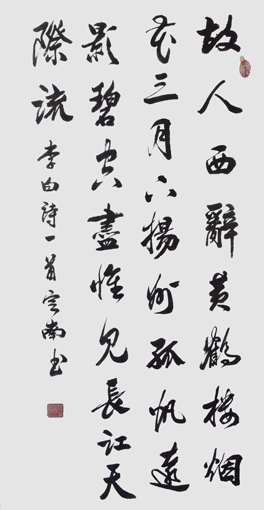 故人西辭黄鶴樓烟
花三月下揚州孤帆遠
影碧空盡惟見長江天
際流 李白詩一首 南书